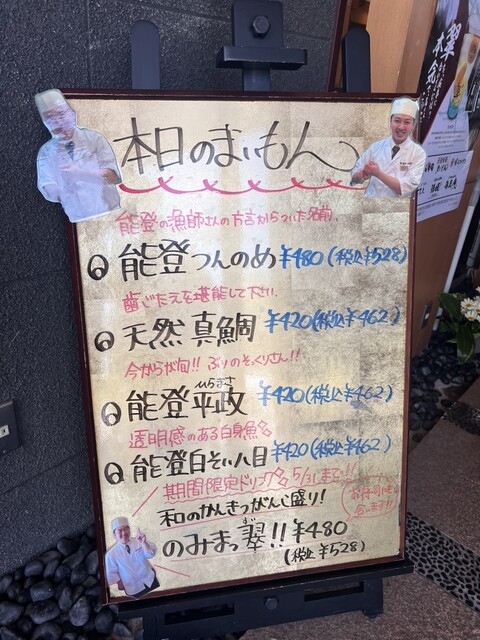 本日のまいもん
能登の漁師さんの方言からついた名前。
能登つんのめ ¥480(税込¥528)
歯ごたえを堪能して下さい
天然真鯛 ¥420(税込¥462)
今からが旬!! ぶりのそっくりさん!!
ひらまさ
能登平政 ¥420(税込¥462)
透明感のある白身魚
能登白そい八目 ¥420(税込¥462)
期間限定ドリンク 5/31まで!!
和のかんきつがんじ盛り!
のみまっ翠!! ¥480
(税込¥528)
翠